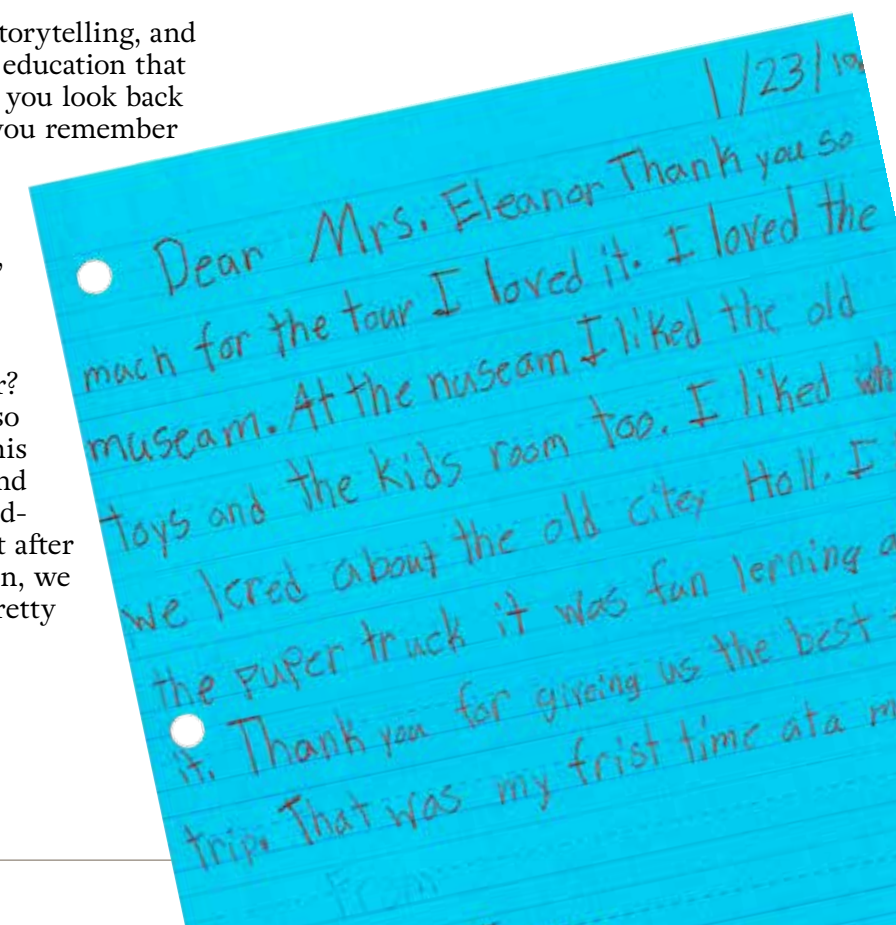 torytelling, and
education that
you look back
you remember
,
r?
so
his
nd
d-
t after
n, we
retty
1/23/
Dear Mrs. Eleanor Thank you so
mach for the tour I loved it. I loved the
museam. At the nuseam I liked the old
toys and the kids room too. I liked wh
we lered about the old citey Hall. I
the puper truck it was fun lerning a
it. Thank you for giveing us the best
trip. That was my frist time at a m
From